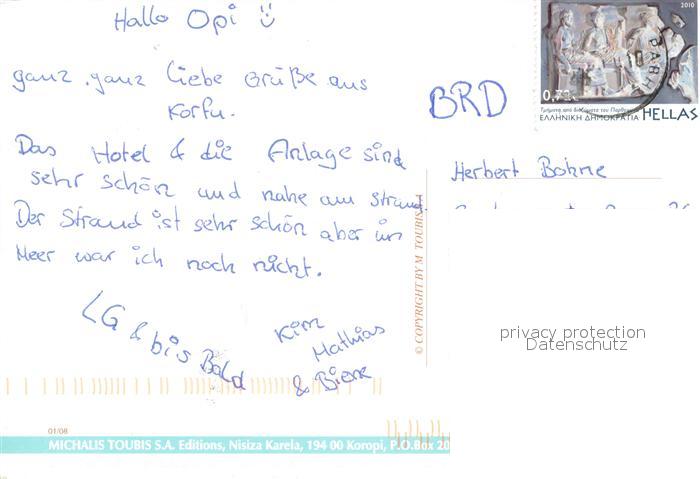 Hallo Opi
ganz, ganz liebe Grüße aus
Korfu.
Das Hotel & die Anlage sind
sehr schön und nahe am Strand.
Der Strand ist sehr schön aber im
Meer war ich noch nicht.
LG & bis Bald
Kim
Mathias
& Biene
BRD
Herbert Bohne
2010
0,72
Τμήματα από διαζώματα του Παρθενώνα
ΕΛΛΗΝΙΚΗ ΔΗΜΟΚΡΑΤΙΑ HELLAS
© COPYRIGHT BY M. TOUBIS S.A.
privacy protection
Datenschutz
01/08
MICHALIS TOUBIS S.A. Editions, Nisiza Karela, 194 00 Koropi, P.O.Box 20